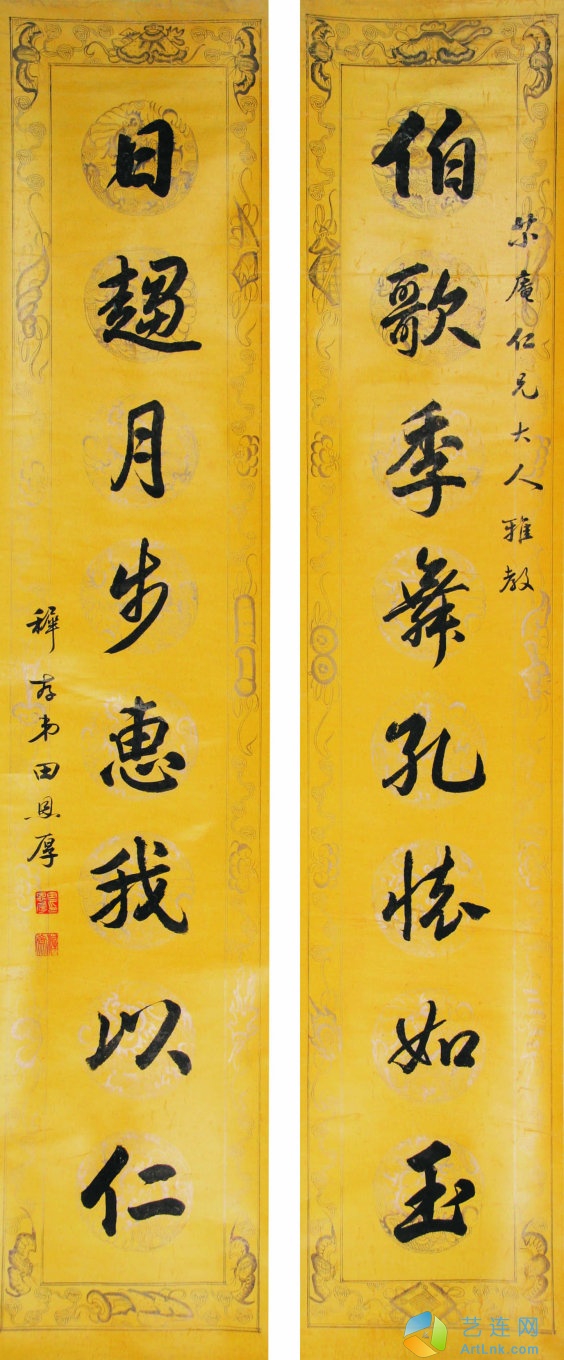 庵仁兄大人雅教
伯歌季舞孔懷如玉
日趨月步惠我以仁
存弟田恩厚
艺连网
ArtLnk.com